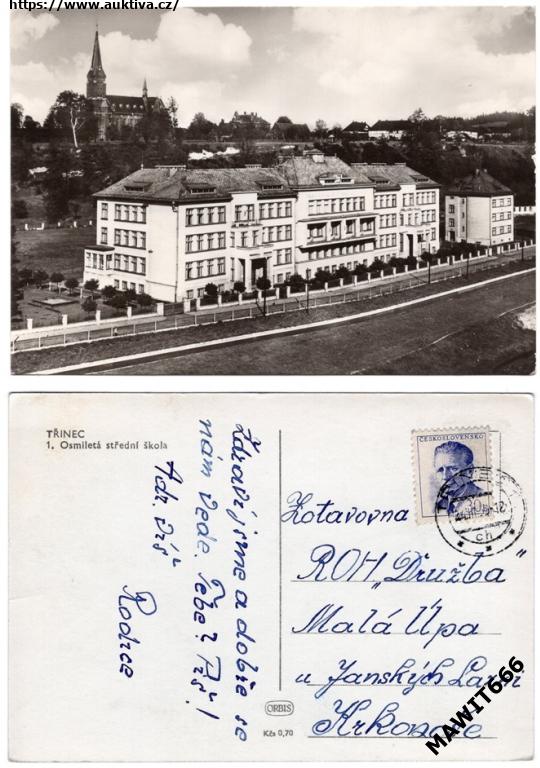 https://www.auktiva.cz/
TŘINEC
1. Osmiletá střední škola
Zdraví jsme a dobře se
nám vede. Tebe? Piš!
Rodiče
ČESKOSLOVENSKO
Zotavovna
ROH „Družba"
Malá Úpa
u Janských Lázní
Krkonoše
ORBIS
Kčs 0,70
MAWIT666